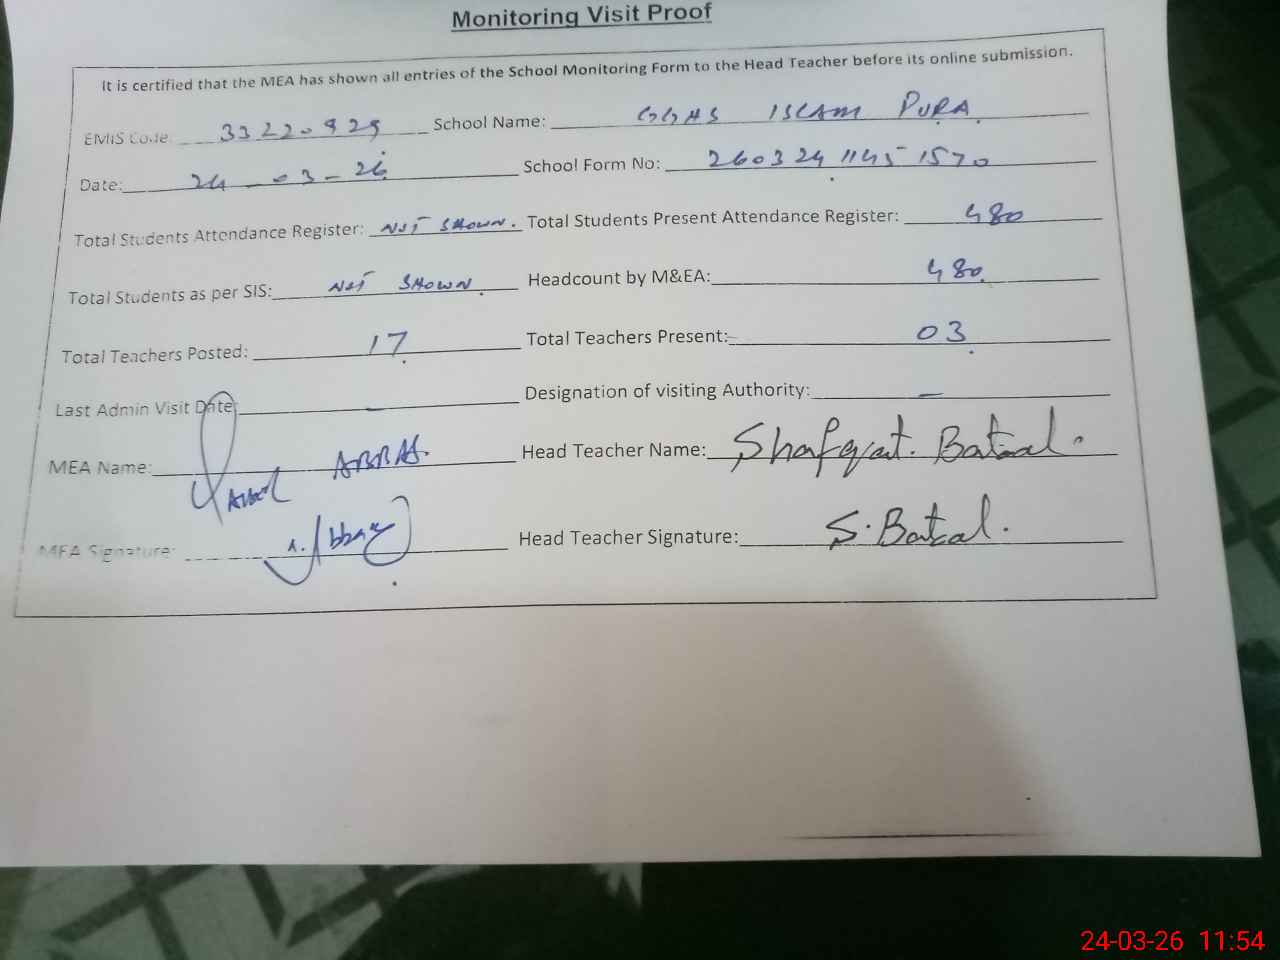 Monitoring Visit Proof
It is certified that the MEA has shown all entries of the School Monitoring Form to the Head Teacher before its online submission.
EMIS Code: 33220929 School Name: GGHS ISLAM PURA
Date: 24-03-26 School Form No: 260324 1145 1570
Total Students Attendance Register: NOT SHOWN. Total Students Present Attendance Register: 480
Total Students as per SIS: NOT SHOWN. Headcount by M&EA: 480
Total Teachers Posted: 17 Total Teachers Present: 03
Last Admin Visit Date: — Designation of visiting Authority: —
MEA Name: ABBAS. Head Teacher Name: Shafqat. Batool.
MEA Signature: A. Abbas Head Teacher Signature: S. Batool.
24-03-26 11:54